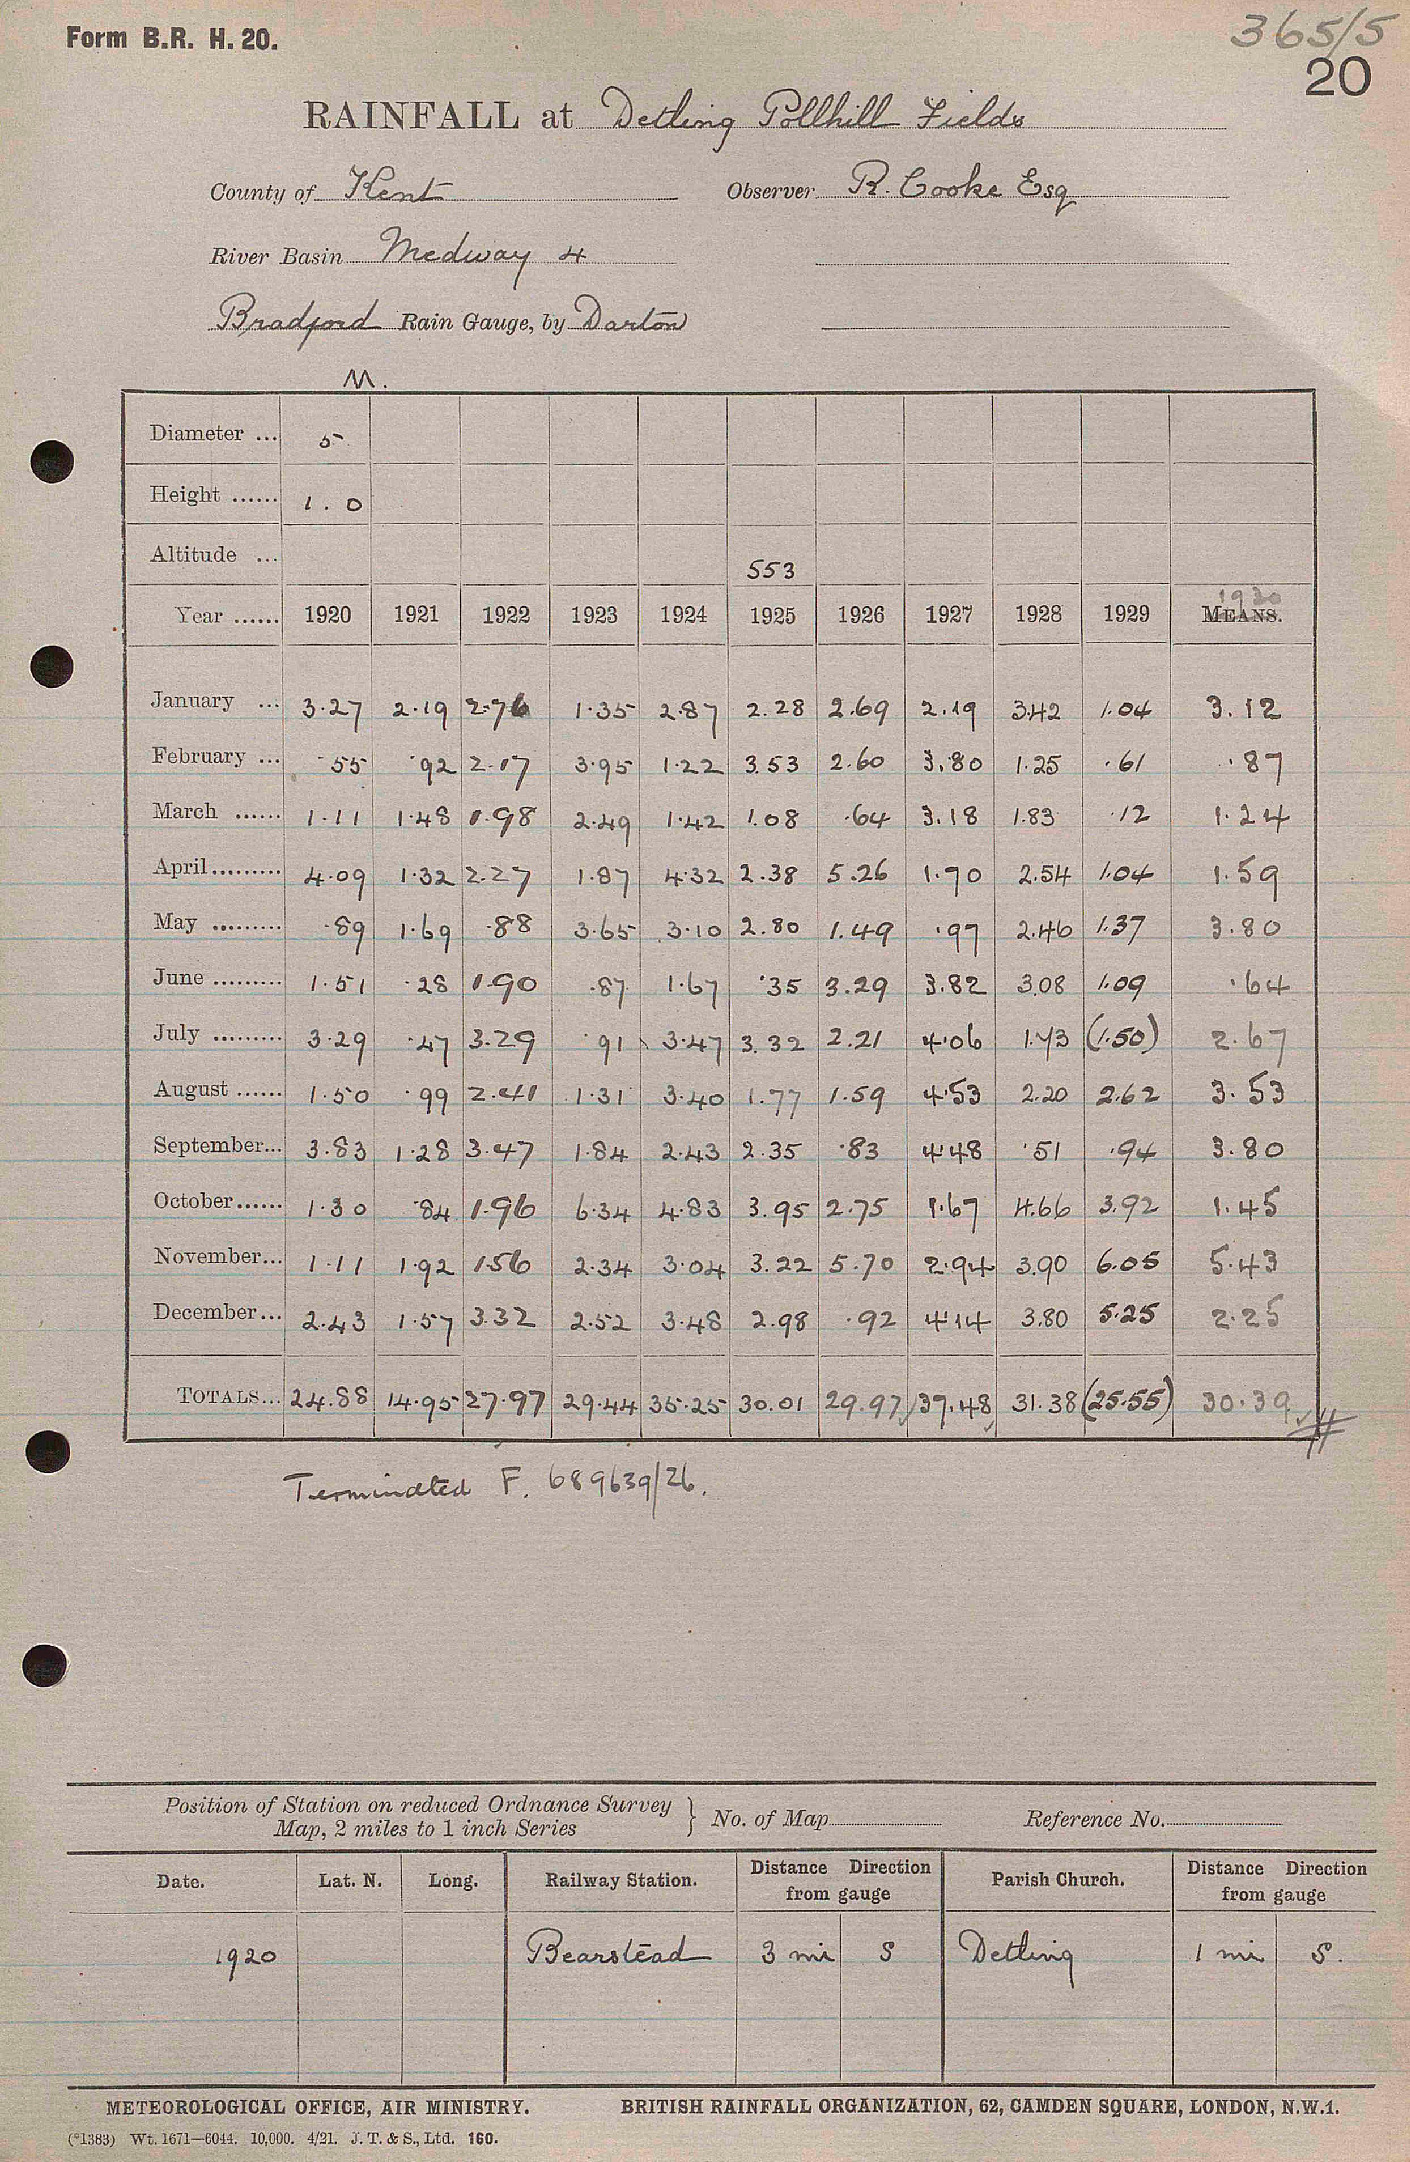 Form B.R. H. 20.
365/5
20
RAINFALL at Detling Pollhill Fields
County of Kent Observer R. Cooke Esq
River Basin Medway 4
Bradford Rain Gauge, by Darton
M.
Diameter ... 5
Height ...... 1.0
Altitude ... 553
Year ...... 1920 1921 1922 1923 1924 1925 1926 1927 1928 1929 MEANS. 1930
January ... 3.27 2.19 2.76 1.35 2.87 2.28 2.69 2.19 3.42 1.04 3.12
February ... .55 .92 2.17 3.95 1.22 3.53 2.60 3.80 1.25 .61 .87
March ...... 1.11 1.48 1.98 2.49 1.42 1.08 .64 3.18 1.83 .12 1.24
April......... 4.09 1.32 2.27 1.87 4.32 2.38 5.26 1.70 2.54 1.04 1.59
May ......... .89 1.69 .88 3.65 3.10 2.80 1.49 .97 2.46 1.37 3.80
June ......... 1.51 .28 1.90 .87 1.67 .35 3.29 3.82 3.08 1.09 .64
July ......... 3.29 .47 3.29 .91 3.47 3.32 2.21 4.06 1.73 (1.50) 2.67
August ...... 1.50 .99 2.41 1.31 3.40 1.77 1.59 4.53 2.20 2.62 3.53
September... 3.83 1.28 3.47 1.84 2.43 2.35 .83 4.48 .51 .94 3.80
October...... 1.30 .84 1.96 6.34 4.83 3.95 2.75 1.67 4.66 3.92 1.45
November... 1.11 1.92 1.56 2.34 3.04 3.22 5.70 2.94 3.90 6.05 5.43
December... 2.43 1.57 3.32 2.52 3.48 2.98 .92 4.14 3.80 5.25 2.25
TOTALS... 24.88 14.95 27.97 29.44 35.25 30.01 29.97 37.48 31.38 (25.55) 30.39
Terminated F. 689639/26.
Position of Station on reduced Ordnance Survey
Map, 2 miles to 1 inch Series } No. of Map Reference No.
Date. Lat. N. Long. Railway Station. Distance Direction from gauge Parish Church. Distance Direction from gauge
1920 Bearstead 3 mi S Detling 1 mi S.
METEOROLOGICAL OFFICE, AIR MINISTRY. BRITISH RAINFALL ORGANIZATION, 62, CAMDEN SQUARE, LONDON, N.W.1.
(*1383) Wt. 1671—6044. 10,000. 4/21. J. T. & S., Ltd. 160.